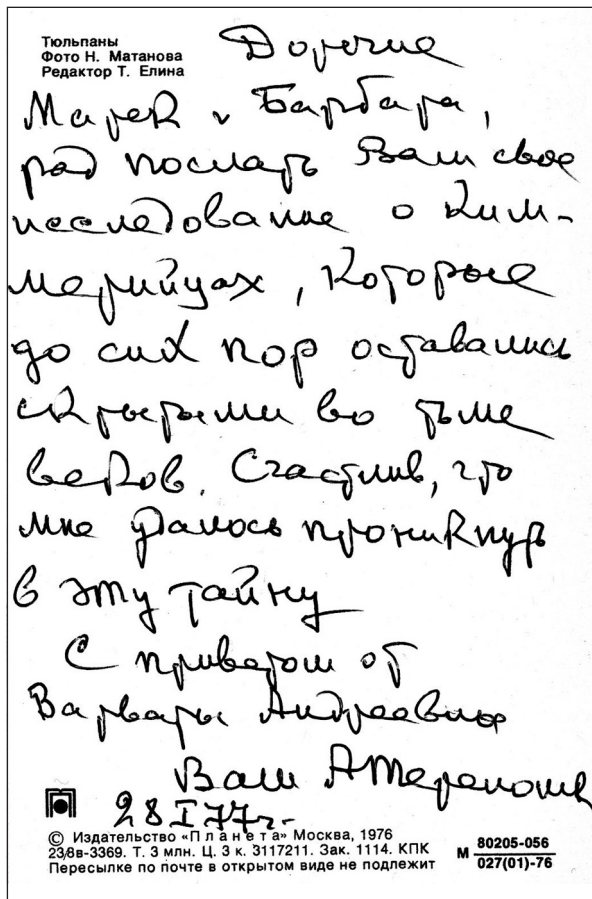 Тюльпаны
Фото Н. Матанова
Редактор Т. Елина
Дорогие
Марек и Барбара,
рад послать Вам свое
исследование о ким-
мерийцах, которые
до сих пор оставались
скрытыми во тьме
веков. Счастлив, что
мне удалось проникнуть
в эту тайну
С приветом от
Варвары Андреевны
Ваш АТереножк
28 I 77 г.
© Издательство «Планета» Москва, 1976
23/8в-3369. Т. 3 млн. Ц. 3 к. 3117211. Зак. 1114. КПК
Пересылке по почте в открытом виде не подлежит
М 80205-056
027(01)-76